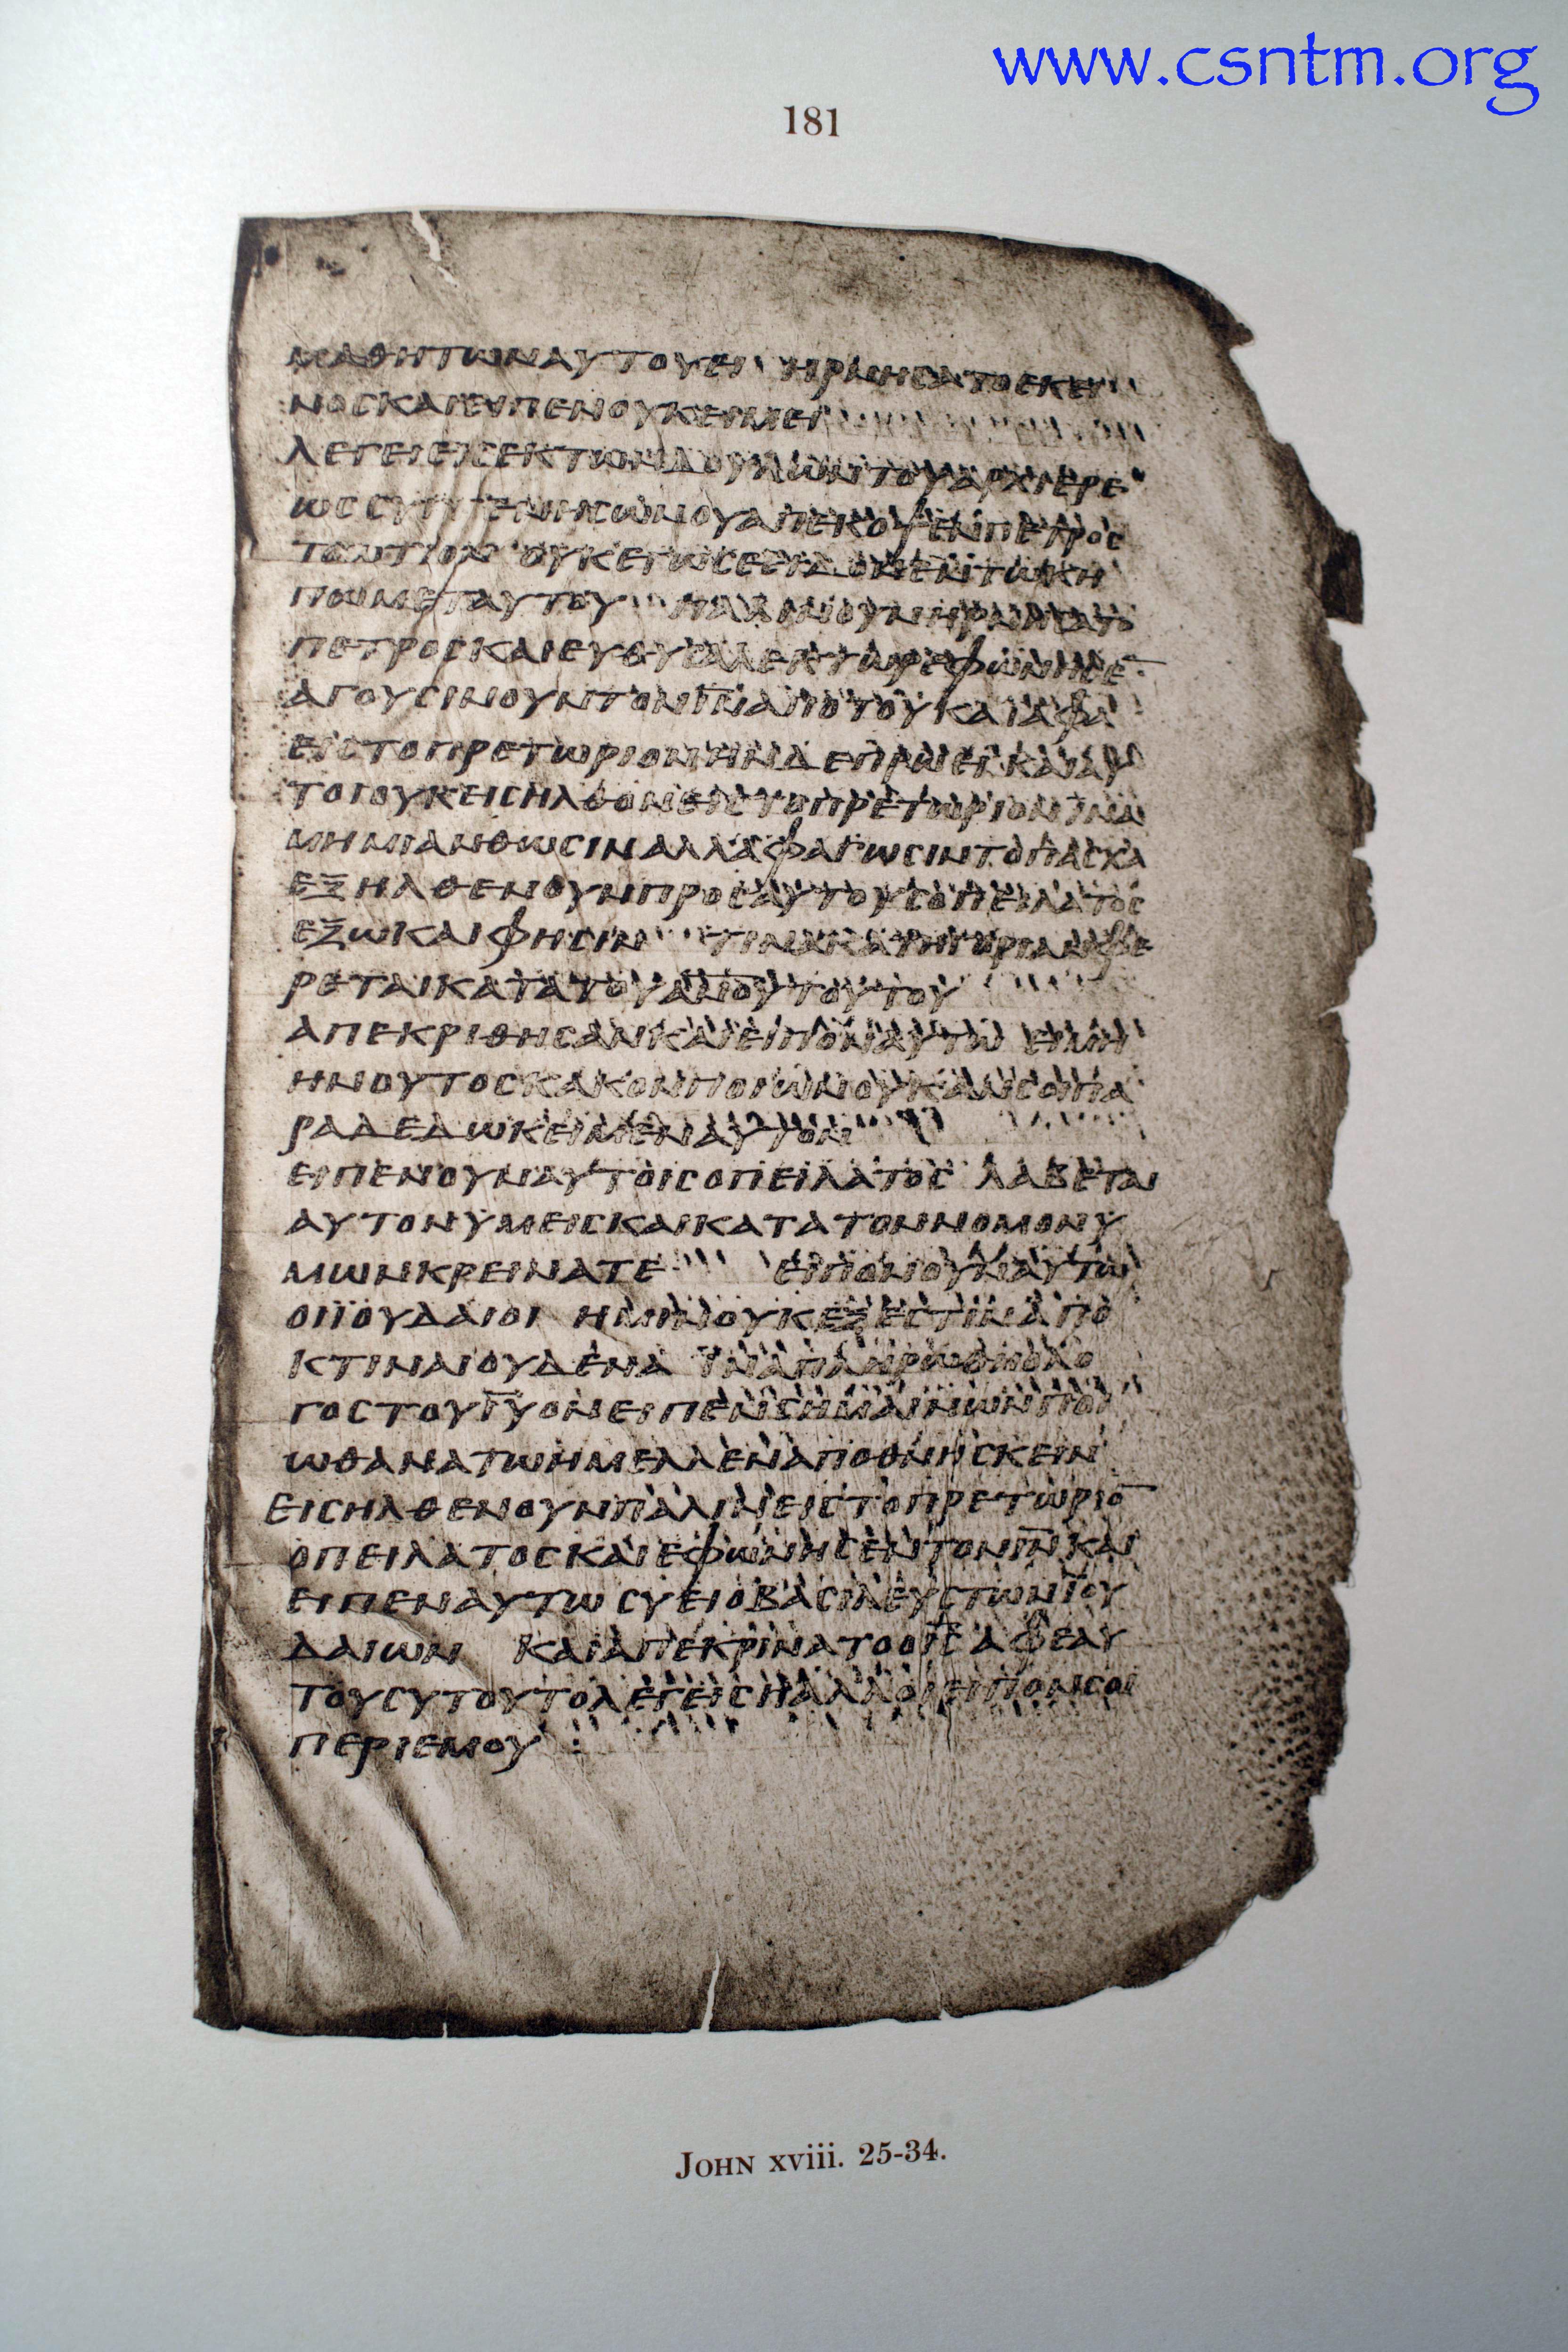 www.csntm.org
181
ΜΑΘΗΤΩΝΑΥΤΟΥΕΙ ΗΡΝΗСΑΤΟΕΚΕΙ
ΝΟСΚΑΙΕΙΠΕΝΟΥΚΕΙΜΕΙ
ΛΕΓΕΙΕΙСΕΚΤΩΝΔΟΥΛΩΝΤΟΥΑΡΧΙΕΡΕ
ΩС ΩΝΟΥΑΠΕΚΟΨΕΝΠΕΤΡΟС
ΤΟΩΤΙΟΝ ΟΥΚΕΓΩСΕΕΙΔΟΝΕΝΤΩΚΗ
ΠΩΜΕΤΑΥΤΟΥ ΠΑΛΙΝΟΥΝΗΡΝΗСΑΤΟ
ΠΕΤΡΟСΚΑΙΕΥΘΥСΑΛΕΚΤΩΡΕΦΩΝΗСΕ̅
ΑΓΟΥСΙΝΟΥΝΤΟΝΙ̅Ν̅ΑΠΟΤΟΥΚΑΙΑΦΑ
ΕΙСΤΟΠΡΕΤΩΡΙΟΝΗΝΔΕΠΡΩΕΙΚΑΙΑΥ
ΤΟΙΟΥΚΕΙСΗΛΘΟΝΕΙСΤΟΠΡΕΤΩΡΙΟΝΙΝΑ
ΜΗΜΙΑΝΘΩСΙΝΑΛΛΑΦΑΓΩСΙΝΤΟΠΑСΧΑ
ΕΞΗΛΘΕΝΟΥΝΠΡΟСΑΥΤΟΥСΟΠΕΙΛΑΤΟС
ΕΞΩΚΑΙΦΗСΙΝ ΤΙΝΑΚΑΤΗΓΟΡΙΑΝΦΕ
ΡΕΤΑΙΚΑΤΑΤΟΥΑ̅Ν̅Ο̅Υ̅ΤΟΥΤΟΥ
ΑΠΕΚΡΙΘΗСΑΝΚΑΙΕΙΠΟΝΑΥΤΩ ΕΙΜΗ
ΗΝΟΥΤΟСΚΑΚΟΝΠΟΙΩΝΟΥΚΑΝСΟΙΠΑ
ΡΑΔΕΔΩΚΕΙΜΕΝΑΥΤΟΝ
ΕΙΠΕΝΟΥΝΑΥΤΟΙСΟΠΕΙΛΑΤΟС ΛΑΒΕΤΑΙ
ΑΥΤΟΝΥΜΕΙСΚΑΙΚΑΤΑΤΟΝΝΟΜΟΝΥ
ΜΩΝΚΡΕΙΝΑΤΕ ΕΙΠΟΝΟΥΝΑΥΤΩ
ΟΙΪΟΥΔΑΙΟΙ ΗΜΙΝΟΥΚΕΞΕСΤΙΝΑΠΟ
ΚΤΙΝΑΙΟΥΔΕΝΑ ΪΝΑΠΛΗΡΩΘΗΟΛΟ
ΓΟСΤΟΥΙ̅Υ̅ΟΝΕΙΠΕΝСΗΜΑΙΝΩΝΠΟΙ
ΩΘΑΝΑΤΩΗΜΕΛΛΕΝΑΠΟΘΝΗСΚΕΙΝ
ΕΙСΗΛΘΕΝΟΥΝΠΑΛΙΝΕΙСΤΟΠΡΕΤΩΡΙΟ̅
ΟΠΕΙΛΑΤΟСΚΑΙΕΦΩΝΗСΕΝΤΟΝΙ̅Ν̅ΚΑΙ
ΕΙΠΕΝΑΥΤΩ СΥΕΙΟΒΑСΙΛΕΥСΤΩΝΪΟΥ
ΔΑΙΩΝ ΚΑΙΑΠΕΚΡΙΝΑΤΟΟΙ̅С̅ΑΦΕΑΥ
ΤΟΥСΥΤΟΥΤΟΛΕΓΕΙСΗΑΛΛΟΙΕΙΠΟΝСΟΙ
ΠΕΡΙΕΜΟΥ :
JOHN xviii. 25-34.